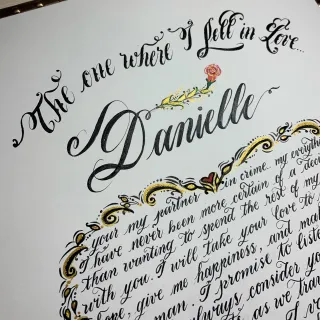 The one where I fell in Love...
Danielle
your my partner in crime... my everyth
I have never been more certain of a deci
than wanting to spend the rest of my
with you. I will take your love to
hope, give me happiness, and mak
man. I promise to liste
always consider yo
as we tra